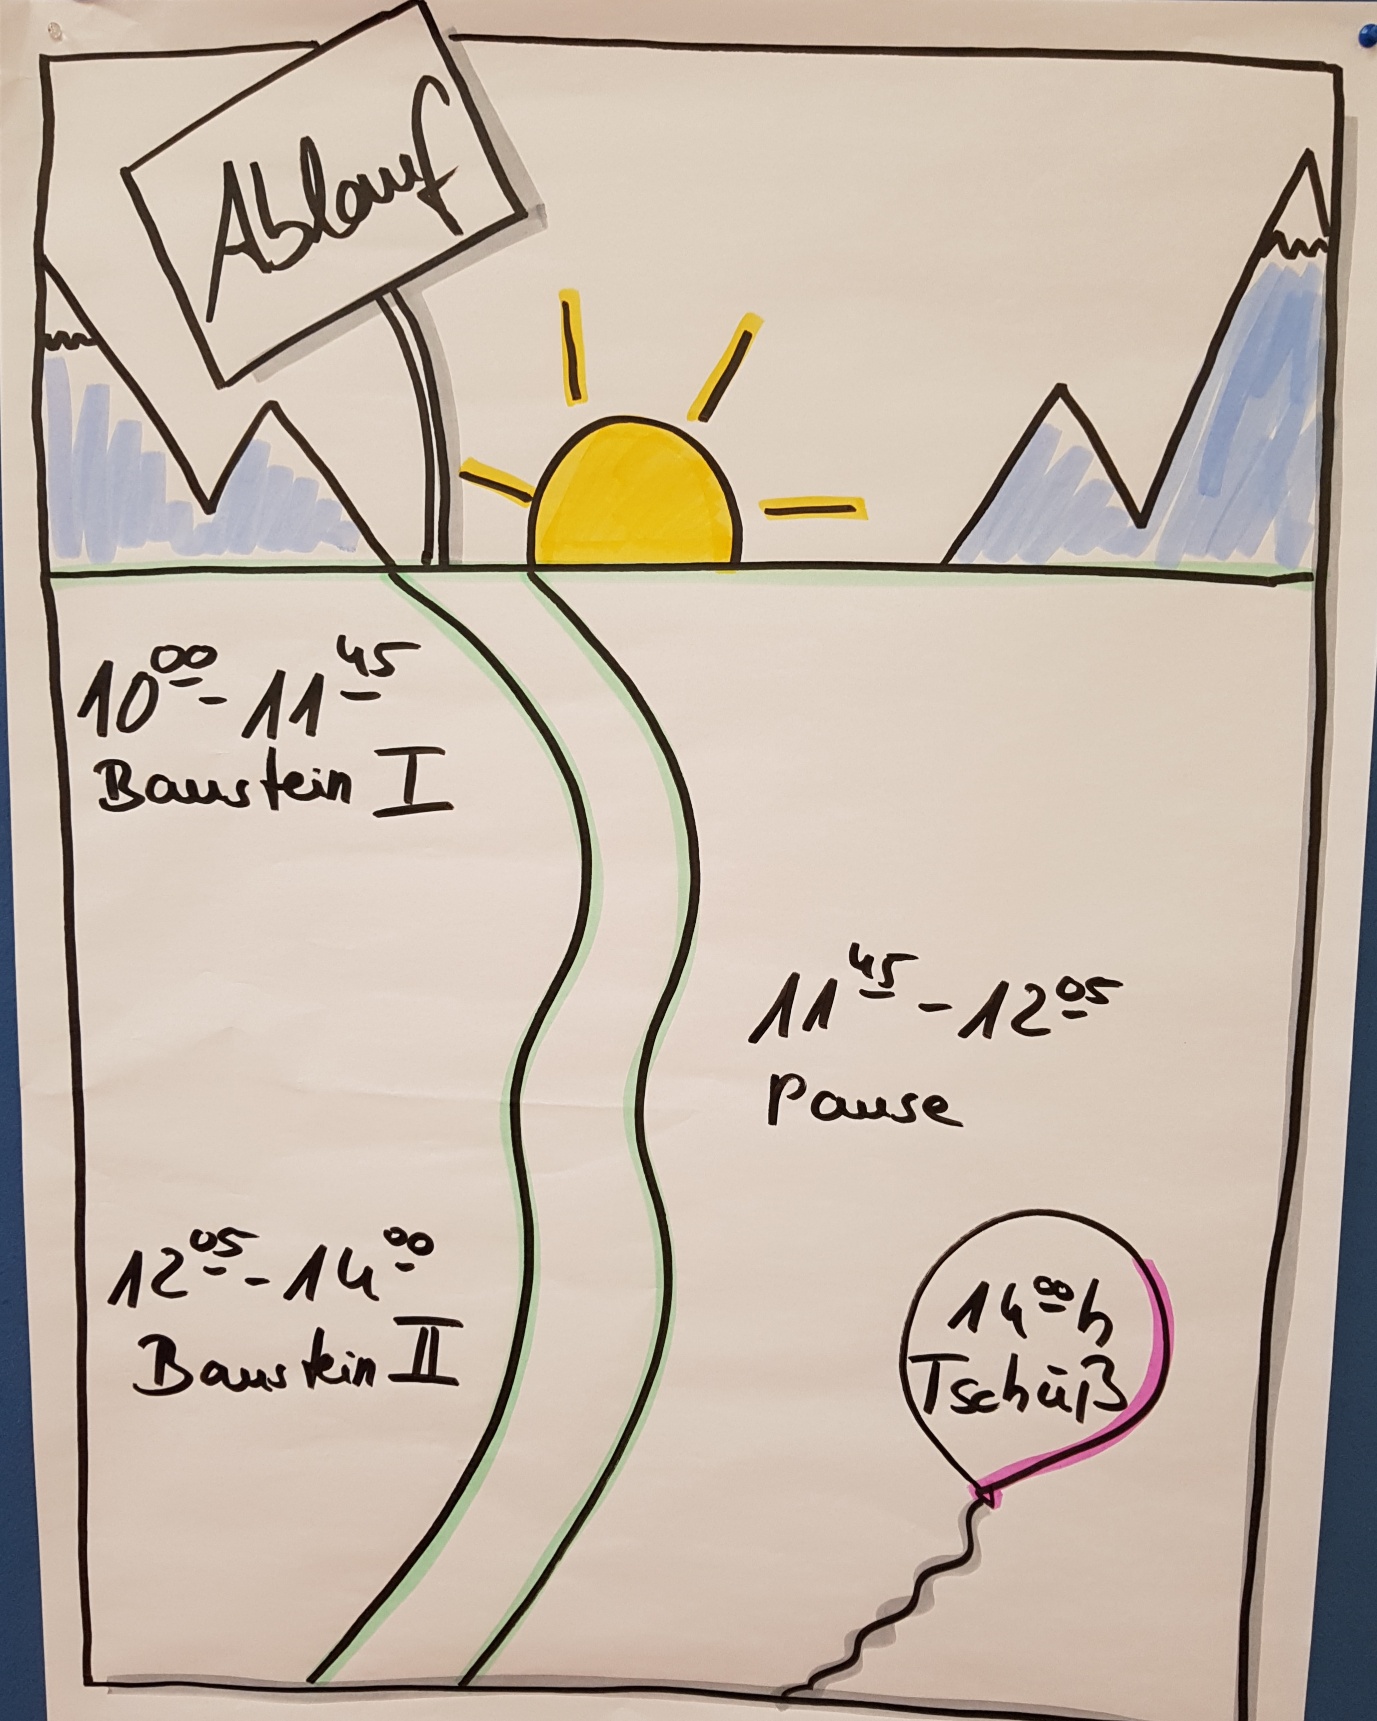 Ablauf
10⁰⁰ - 11⁴⁵
Baustein I
11⁴⁵ - 12⁰⁵
Pause
12⁰⁵ - 14⁰⁰
Baustein II
14⁰⁰ h
Tschüß